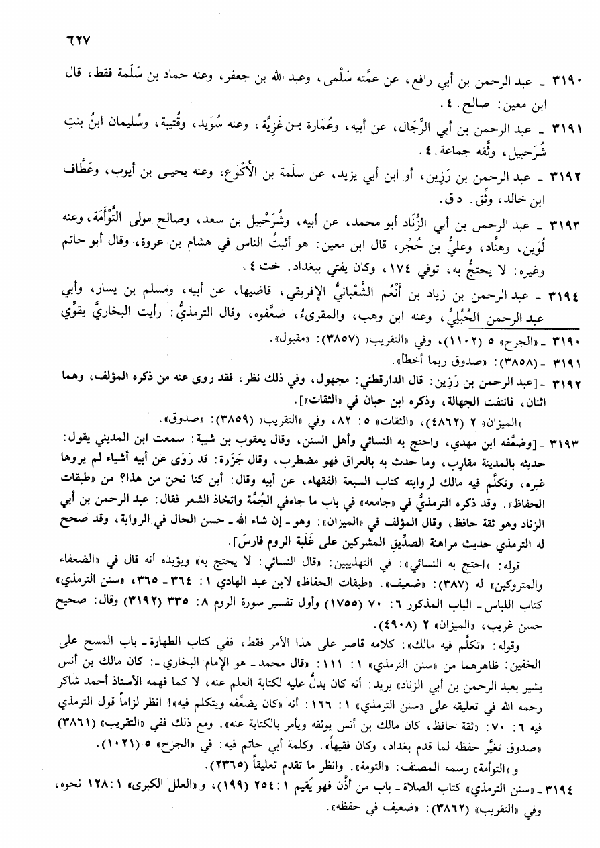 ٦٢٧
٣١٩٠ ـ عبد الرحمن بن أبي رافع، عن عمَّته سَلْمى، وعبد الله بن جعفر، وعنه حماد بن سَلَمة فقط، قال
ابن معين: صالح. ٤.
٣١٩١ ـ عبد الرحمن بن أبي الرِّجال، عن أبيه، وعُمَارة بن غَزِيَّة، وعنه سُوَيد، وقُتيبة، وسُليمان ابنُ بنتِ
شُرَحبيل، وثَّقه جماعة. ٤.
٣١٩٢ ـ عبد الرحمن بن رَزِين، أو ابن أبي يزيد، عن سلَمة بن الأَكْوَع، وعنه يحيى بن أيوب، وعَطَّاف
ابن خالد، وثِّق. د ق.
٣١٩٣ ـ عبد الرحمن بن أبي الزِّناد أبو محمد، عن أبيه، وشُرَحْبيل بن سعد، وصالح مولى التُّوْأَمَة، وعنه
لُوَين، وهنَّاد، وعليُّ بن حُجْر، قال ابن معين: هو أثبتُ الناس في هشام بن عروة، وقال أبو حاتم
وغيره: لا يحتجُّ به، توفي ١٧٤، وكان يفتي ببغداد. خت ٤.
٣١٩٤ ـ عبد الرحمن بن زياد بن أَنْعُم الشَّعْبانيُّ الإفريقي، قاضيها، عن أبيه، ومسلم بن يسار، وأبي
عبد الرحمن الحُبُلِيُّ، وعنه ابن وهب، والمقرىءُ، ضعَّفوه، وقال الترمذيُّ: رأيت البخاريَّ يقوِّي
٣١٩٠ ـ «الجرح» ٥ (١١٠٢)، وفي «التقريب» (٣٨٥٧): «مقبول».
٣١٩١ ـ (٣٨٥٨): «صدوق ربما أخطأ».
٣١٩٢ ـ [عبد الرحمن بن رَزِين: قال الدارقطني: مجهول، وفي ذلك نظر، فقد روى عنه من ذكره المؤلف، وهما
اثنان، فانتفت الجهالة، وذكره ابن حبان في «الثقات»].
«الميزان» ٢ (٤٨٦٢)، «الثقات» ٥: ٨٢، وفي «التقريب» (٣٨٥٩): «صدوق».
٣١٩٣ ـ [وضعَّفه ابن مهدي، واحتج به النسائي وأهل السنن، وقال يعقوب بن شيبة: سمعت ابن المديني يقول:
حديثه بالمدينة مقارب، وما حدث به بالعراق فهو مضطرب، وقال جَزَرة: قد رَوَى عن أبيه أشياء لم يروها
غيره، وتكلَّم فيه مالك لروايته كتاب السبعة الفقهاء، عن أبيه وقال: أين كنا نحن من هذا؟ من «طبقات
الحفاظ». وقد ذكره الترمذيُّ في «جامعه» في باب ما جاء في الجُمَّة واتخاذ الشعر فقال: عبد الرحمن بن أبي
الزناد وهو ثقة حافظ، وقال المؤلف في «الميزان»: وهو ـ إن شاء الله ـ حسن الحال في الرواية، وقد صحح
له الترمذي حديث مراهنة الصدِّيقِ المشركين على غَلَبة الروم فارسَ].
قوله: «احتج به النسائي»: في التهذيبين: «قال النسائي: لا يحتج به» ويؤيده أنه قال في «الضعفاء
والمتروكين» له (٣٨٧): «ضعيف». «طبقات الحفاظ» لابن عبد الهادي ١: ٣٦٤ ـ ٣٦٥، «سنن الترمذي»
كتاب اللباس ـ الباب المذكور ٦: ٧٠ (١٧٥٥) وأول تفسير سورة الروم ٨: ٣٣٥ (٣١٩٢) وقال: صحيح
حسن غريب، «الميزان» ٢ (٤٩٠٨).
وقوله: «تكلَّم فيه مالك»: كلامه قاصر على هذا الأمر فقط، ففي كتاب الطهارة ـ باب المسح على
الخفين: ظاهرهما من «سنن الترمذي» ١: ١١١: «قال محمد ـ هو الإمام البخاري ـ: كان مالك بن أنس
يشير بعبد الرحمن بن أبي الزناد» يريد: أنه كان يدلُّ عليه لكتابة العلم عنه، لا كما فهمه الأستاذ أحمد شاكر
رحمه الله في تعليقه على «سنن الترمذي» ١: ١٦٦: أنه «كان يضعِّفه ويتكلم فيه»! انظر لزاماً قول الترمذي
فيه ٦: ٧٠: «ثقة حافظ، كان مالك بن أنس يوثقه ويأمر بالكتابة عنه». ومع ذلك ففي «التقريب» (٣٨٦١)
«صدوق تغيَّر حفظه لما قدم بغداد، وكان فقيهاً». وكلمة أبي حاتم فيه: في «الجرح» ٥ (١٠٢١).
و «التوأمة» رسمه المصنف: «التومة». وانظر ما تقدم تعليقاً (٢٣٦٥).
٣١٩٤ ـ «سنن الترمذي» كتاب الصلاة ـ باب من أذَّن فهو يُقيم ١: ٢٥٤ (١٩٩)، و «العلل الكبرى» ١: ١٢٨ نحوه،
وفي «التقريب» (٣٨٦٢): «ضعيف في حفظه».